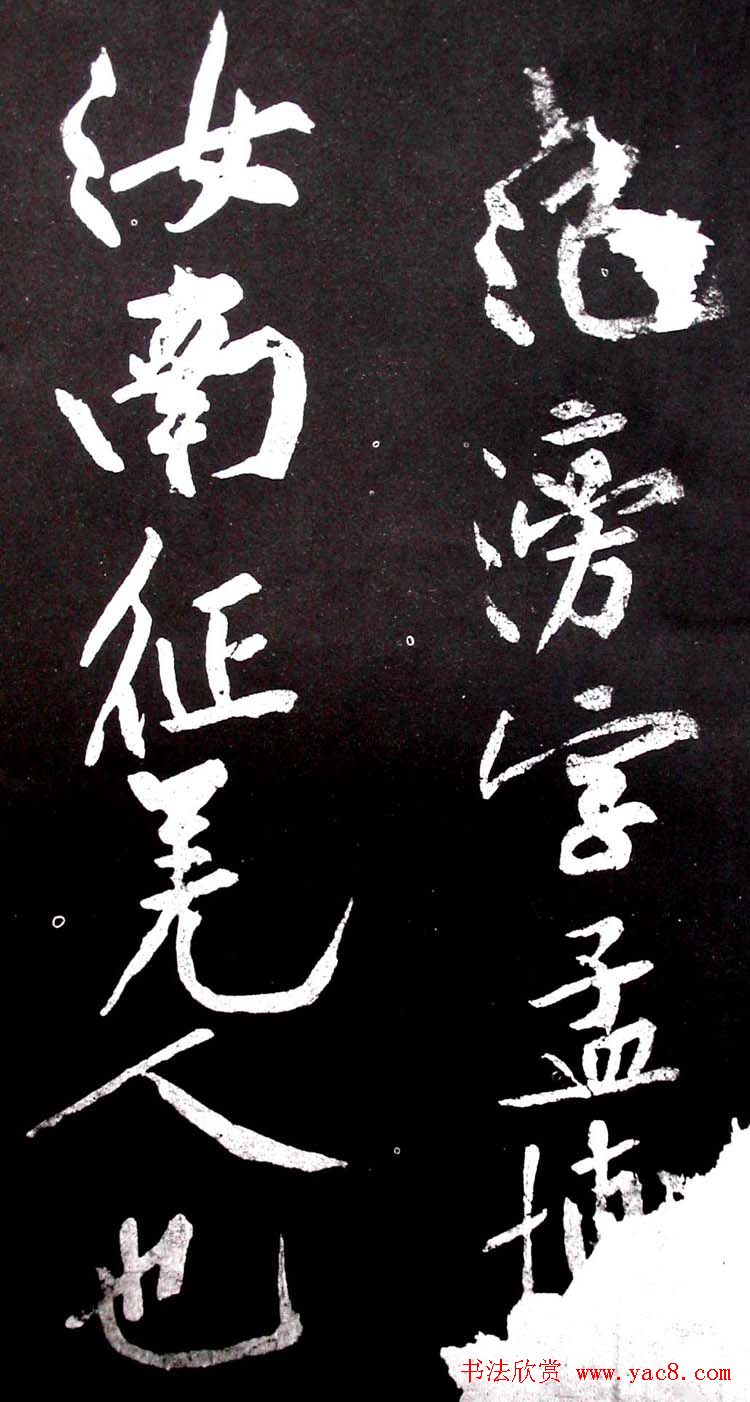 范滂字孟博
汝南征羌人也
书法欣赏 www.yac8.com